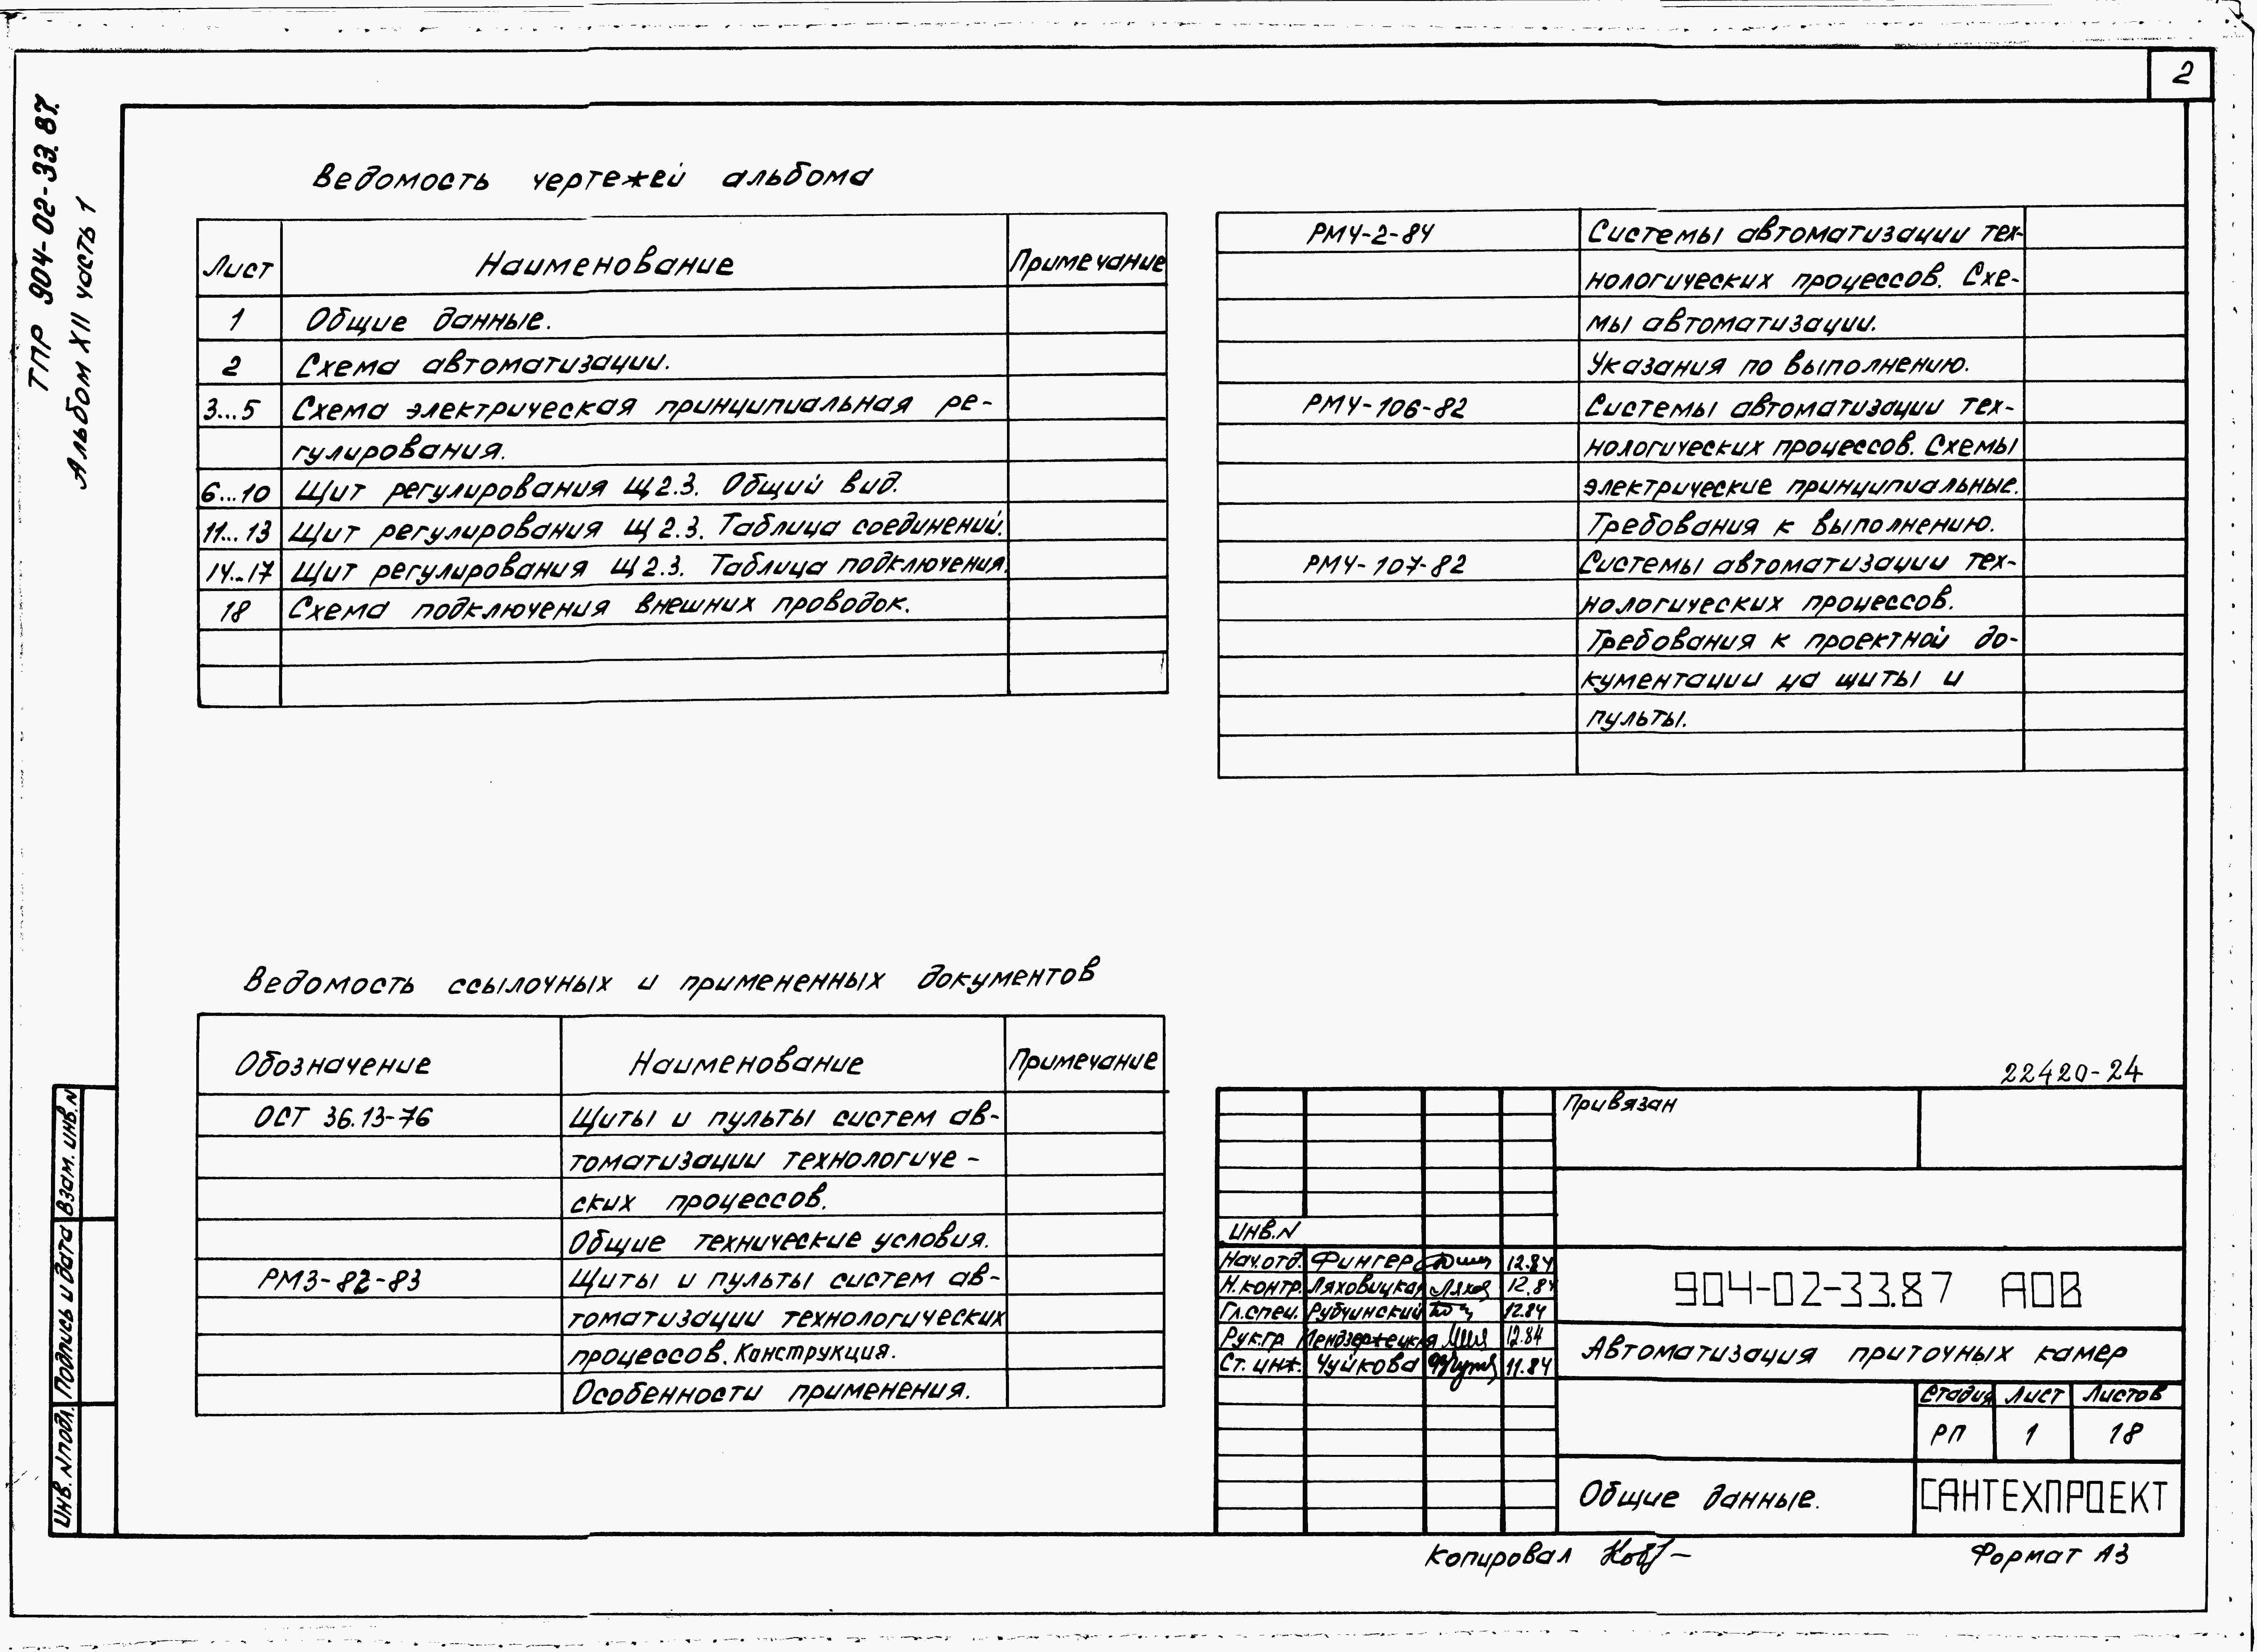 2
ТПР 904-02-33.87.
Альбом XII часть 1
Ведомость чертежей альбома
Лист Наименование Примечание
1 Общие данные.
2 Схема автоматизации.
3...5 Схема электрическая принципиальная ре-
гулирования.
6...10 Щит регулирования Щ2.3. Общий вид.
11...13 Щит регулирования Щ2.3. Таблица соединений.
14...17 Щит регулирования Щ2.3. Таблица подключения.
18 Схема подключения внешних проводок.
Ведомость ссылочных и примененных документов
Обозначение Наименование Примечание
ОСТ 36.13-76 Щиты и пульты систем ав-
томатизации технологиче-
ских процессов.
Общие технические условия.
РМ3-82-83 Щиты и пульты систем ав-
томатизации технологических
процессов. Конструкция.
Особенности применения.
РМ4-2-84 Системы автоматизации тех-
нологических процессов. Схе-
мы автоматизации.
Указания по выполнению.
РМ4-106-82 Системы автоматизации тех-
нологических процессов. Схемы
электрические принципиальные.
Требования к выполнению.
РМ4-107-82 Системы автоматизации тех-
нологических процессов.
Требования к проектной до-
кументации на щиты и
пульты.
22420-24
Привязан
Инв.N
Нач.отд. Фингер 12.84
Н.контр. Ляховицкая 12.84
Гл.спец. Рубчинский 12.84
Рук.гр. Мендзержецкая 12.84
Ст. инж. Чуйкова 11.84
904-02-33.87 АОВ
Автоматизация приточных камер
Стадия Лист Листов
РП 1 18
Общие данные.
САНТЕХПРОЕКТ
Взам. инв.N
Подпись и дата
Инв. N подл.
Копировал
Формат А3